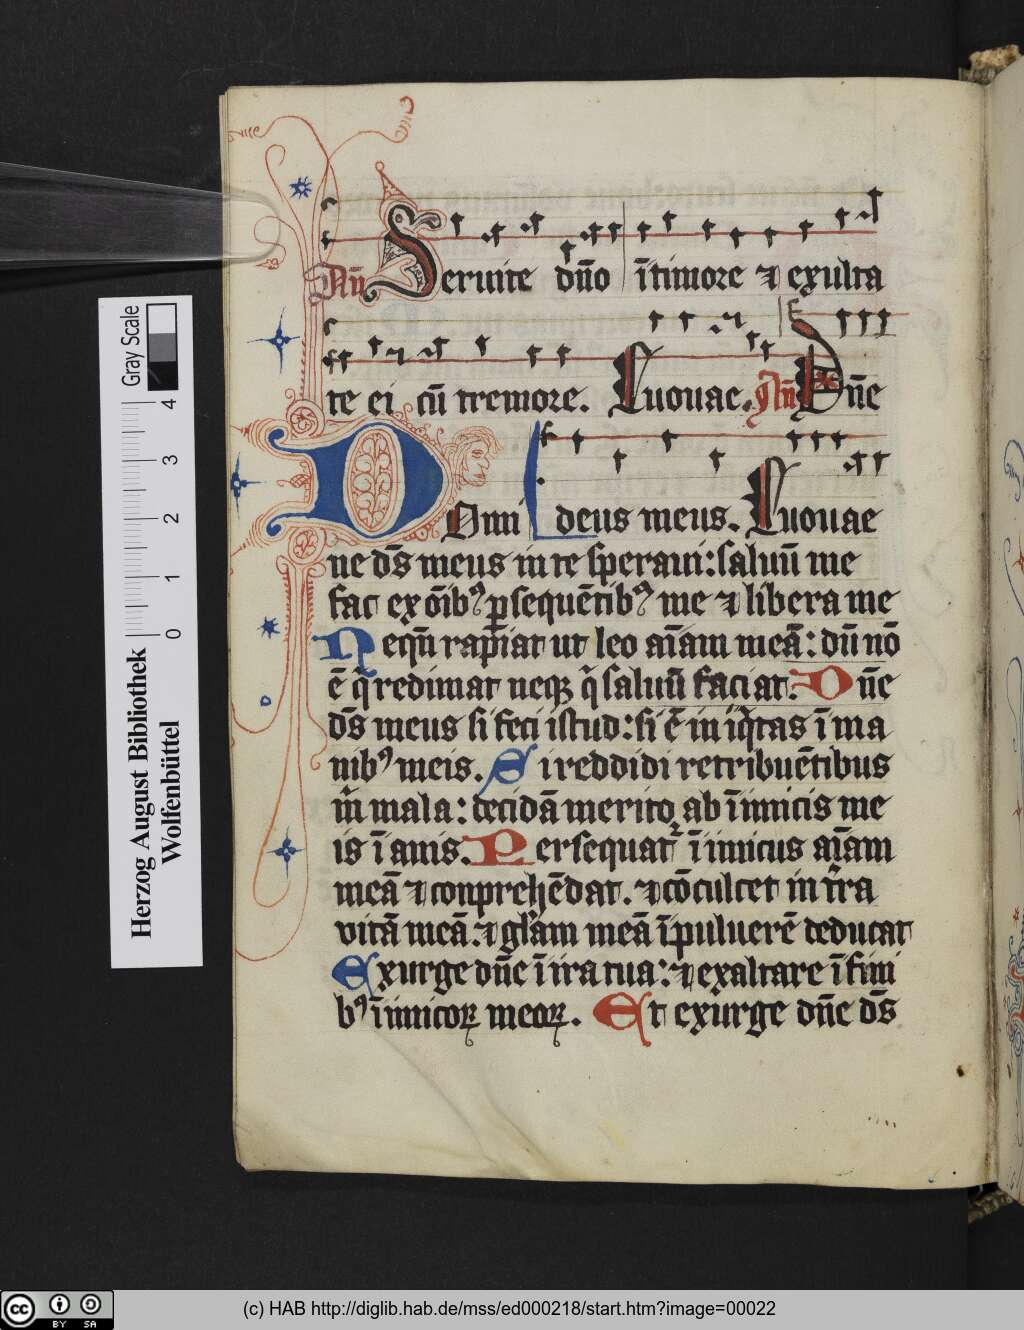 Añ Seruite dño ītimore ⁊ exulta
te ei cū tremore. Euouae. Añ Dñe
Domi deus meus. Euouae
ne ds̄ meus in te speraui: saluū me
fac ex ōibꝰ ꝑsequētibꝰ me ⁊ libera me
Nequn̄ rapiat ut leo aīam meā: dū nō
ē q redimat neqꝫ q saluū faciat. Dñe
ds̄ meus si feci istud: si ē in iq̄tas ī ma
nibꝰ meis. Si reddidi retribuētibus
m̄ mala: decidā merito ab īimicis me
is īanis. Persequat᷑ īimicus aīam
meā ⁊ conprehēdat. ⁊ cōculcet in tr̄a
vitā meā. ⁊ gl̄am meā īpuluerē deducat
Exurge dñe ī ira tua: ⁊ exaltare ī fini
bꝰ īimicoꝝ meoꝝ. Et exurge dñe ds̄
Herzog August Bibliothek
Wolfenbüttel
Gray Scale
0 1 2 3 4
cc BY SA
(c) HAB http://diglib.hab.de/mss/ed000218/start.htm?image=00022